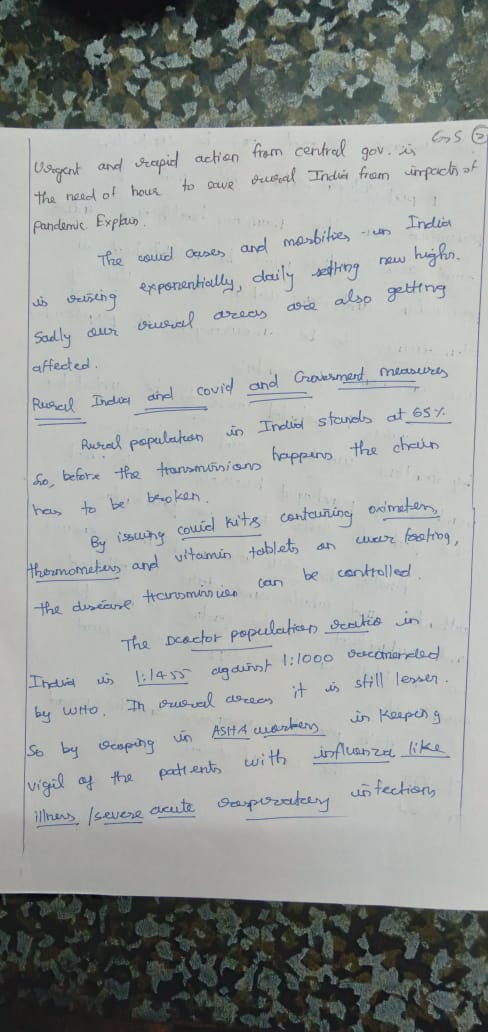 GS 2
Urgent and rapid action from central gov. is
the need of hour to save rural India from impacts of
pandemic Explain.
The covid cases and morbities in India
is rising exponentially, daily setting new highs.
Sadly our rural areas are also getting
affected.
Rural India and covid and Government measures
Rural population in India stands at 65%
So, before the transmissions happens the chain
has to be broken.
By issuing covid kits containing oximeters,
thermometers and vitamin tablets on war footing,
the disease transmission can be controlled.
The Doactor population ratio in
India is 1:1455 against 1:1000 recomended
by WHO. In rural areas it is still lesser.
So by roping in ASHA workers in keeping
vigil of the patients with influenza like
illness /severe acute respiratory infections